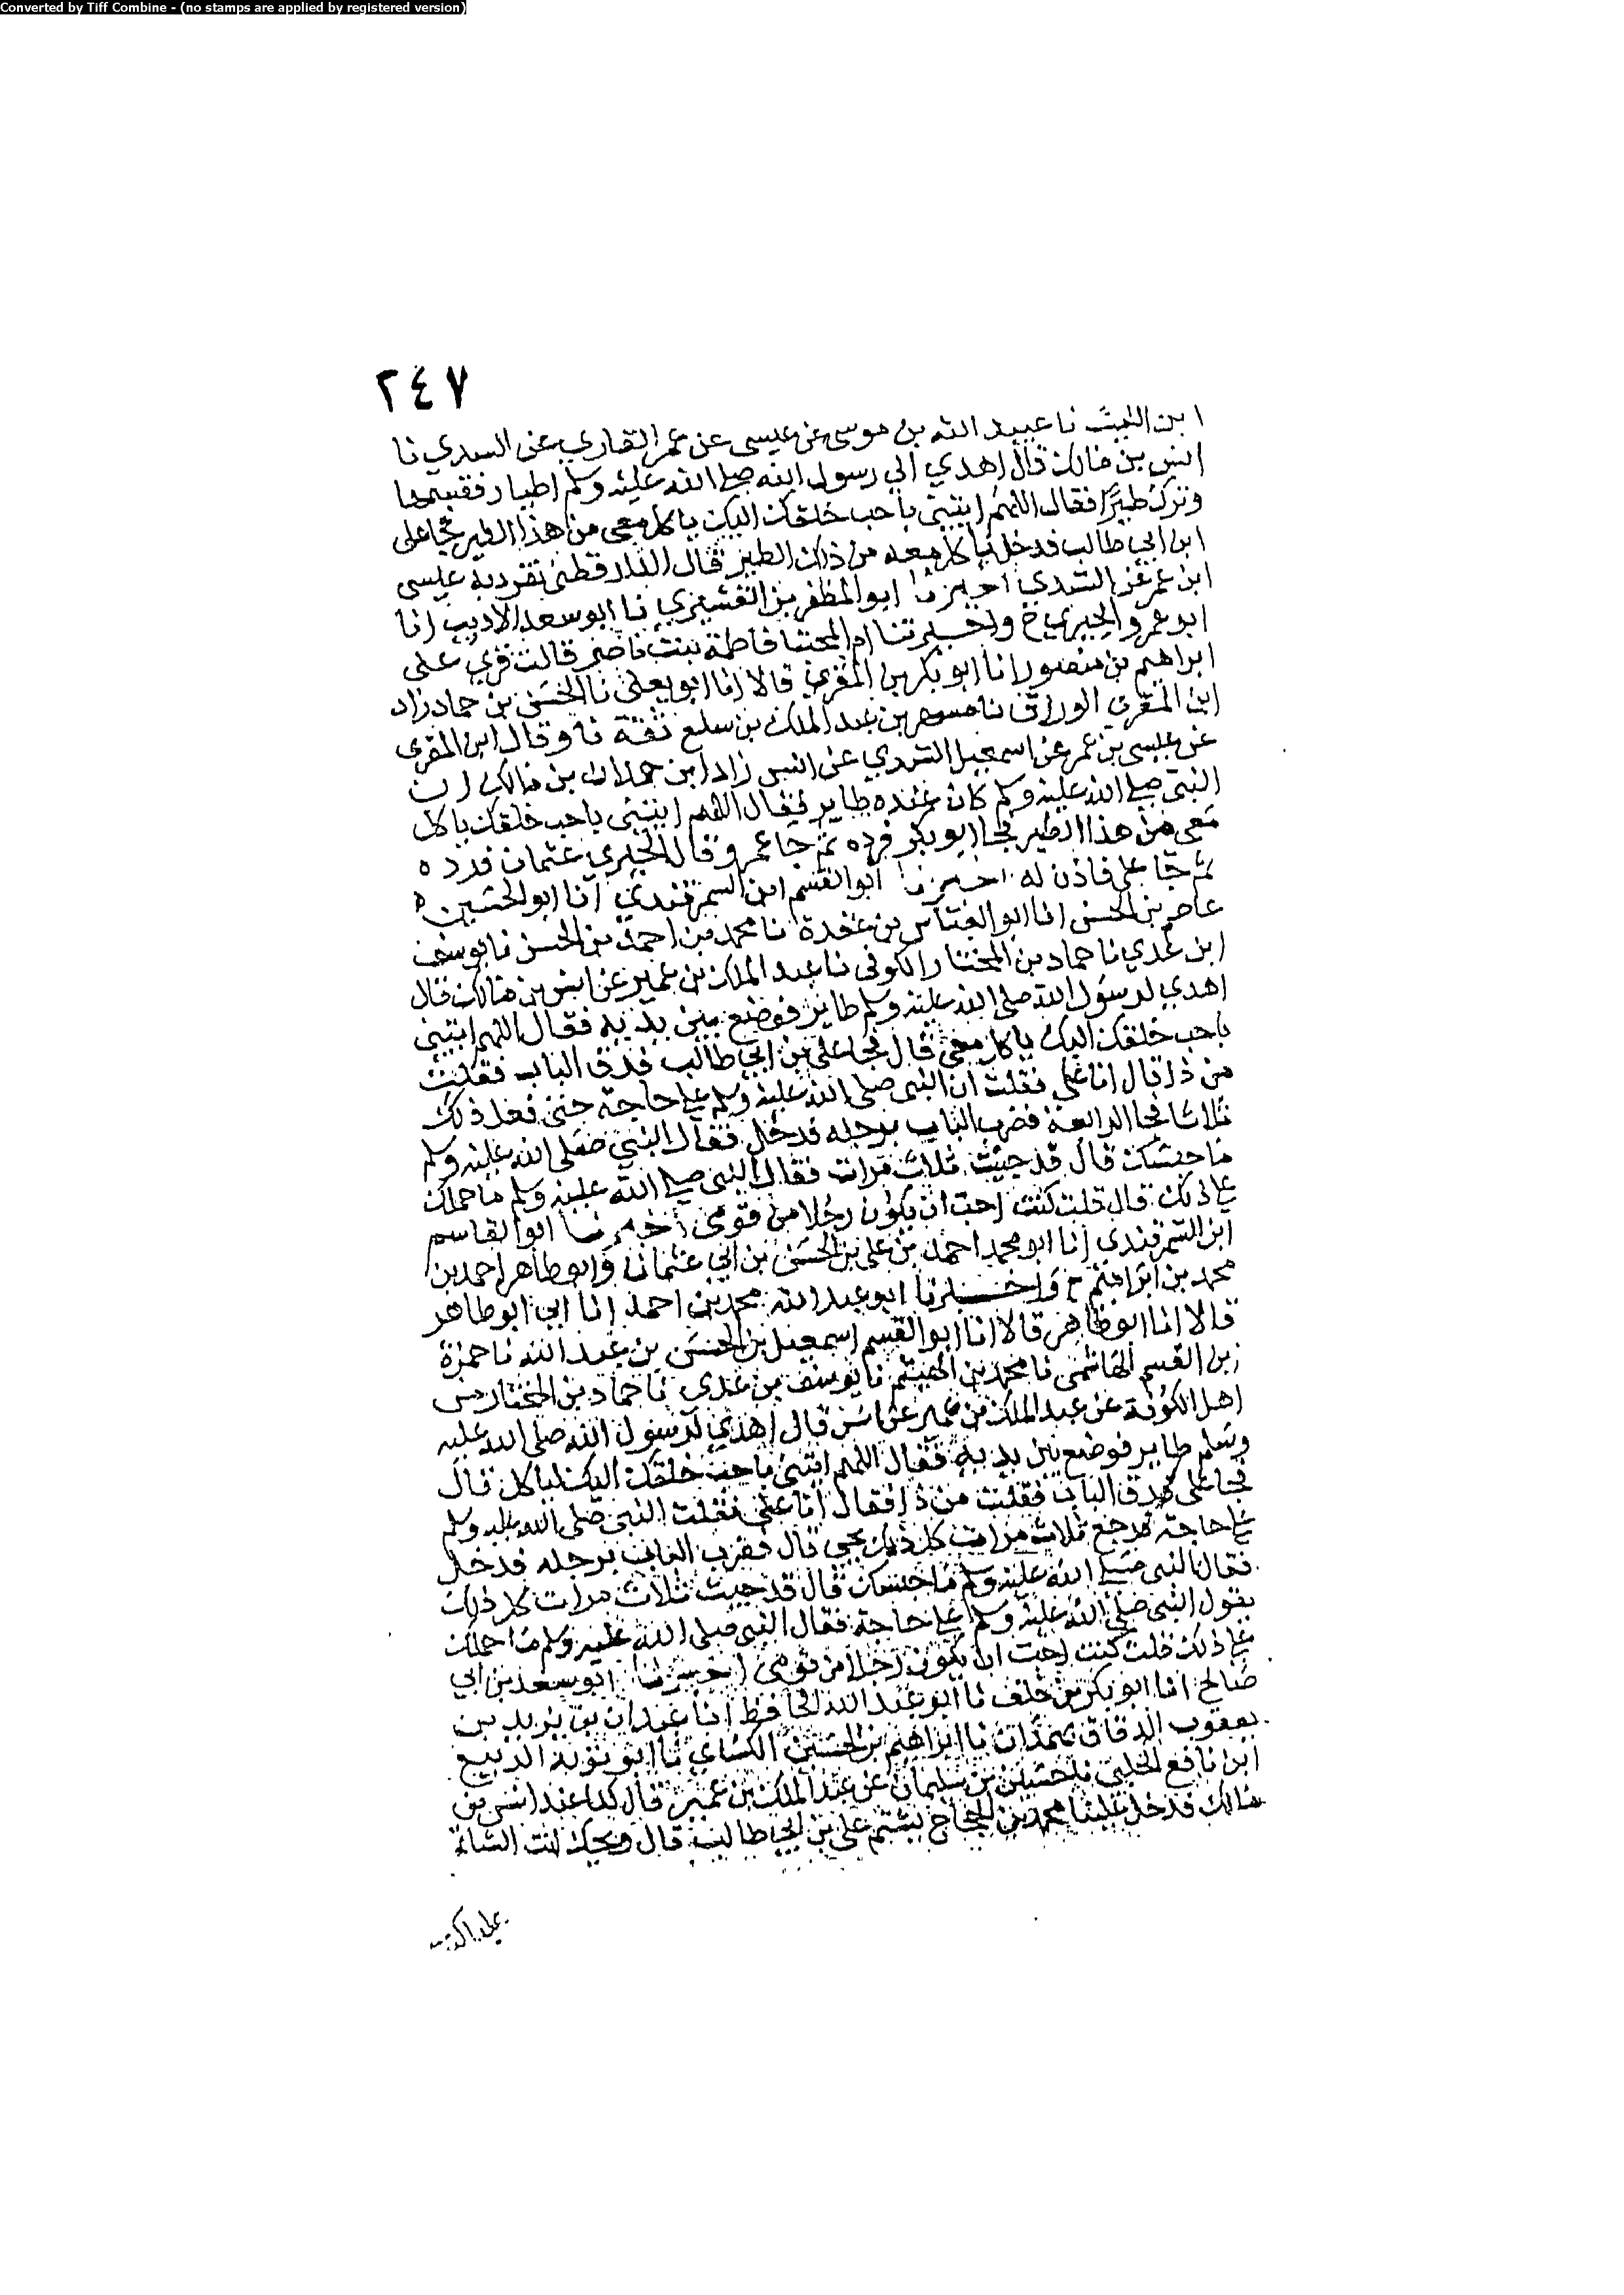 Converted by Tiff Combine - (no stamps are applied by registered version)
٢٤٧
ابن الليث نا عبيد الله بن موسى عن عيسى عن عمر القاري عن السدي نا
انس بن مالك قال اهدي الي رسول الله صلى الله عليه وسلم اطيار فقسمها
وترك طيرا فقال اللهم ايتني باحب خلقك اليك ياكل معي من هذا الطير فجا على
ابن ابي طالب فدخل ياكل معه من ذلك الطير قال الدارقطني تفرد به عيسى
ابن عمر عن السدي اخبرنا ابو المظفر بن القشيري نا ابو سعد الاديب انا
ابو عمرو الحيري ح واخبرتنا ام المجتبا فاطمة بنت ناصر قالت قرئ على
ابراهيم بن منصور انا ابو بكر بن المقري قالا انا ابو يعلى نا الحسن بن حماد زاد
ابن المقري الوراق نا مسهر بن عبد الملك بن سلع ثقة نا وقال ابن المقرى
عن عيسى بن عمر عن اسمعيل السدي عن انس زاد ابن حمدان بن مالك ان
النبي صلى الله عليه وسلم كان عنده طاير فقال اللهم ايتني باحب خلقك ياكل
معي من هذا الطير فجا ابو بكر فرده ثم جا عمر وقال الحيري عثمان فرده
ثم جا على فاذن له اخبرنا ابو القسم ابن السمرقندي انا ابو الحسين
عاصم بن الحسن انا ابو العباس بن عقدة نا محمد بن احمد بن الحسن نا يوسف
ابن عدي نا حماد بن المختار الكوفي نا عبد الملك بن عمير عن انس بن مالك قال
اهدي لرسول الله صلى الله عليه وسلم طاير فوضع بين يديه فقال اللهم ايتني
باحب خلقك اليك ياكل معي قال فجا على بن ابي طالب فدق الباب فقلت
من ذا قال انا على فقلت ان النبي صلى الله عليه وسلم على حاجة حتى فعل ذلك
ثلاثا فجا الرابعة فضرب الباب برجله فدخل فقال النبي صلى الله عليه وسلم
ما حبسك قال قد جيت ثلاث مرات فقال النبي صلى الله عليه وسلم ما حملك
على ذلك قال قلت كنت احب ان يكون رجلا من قومي اخبرنا ابو القاسم
ابن السمرقندي انا ابو محمد احمد بن على بن الحسن بن ابي عثمان وابو طاهر احمد بن
محمد بن ابراهيم ح واخبرنا ابو عبد الله محمد بن احمد انا ابي ابو طاهر
قالا انا ابو طاهر قالا انا ابو القسم اسمعيل بن الحسن بن عبد الله نا حمزة
ابن القسم الهاشمي نا محمد بن الهيثم نا يوسف بن عدي نا حماد بن المختار من
اهل الكوفة عن عبد الملك بن عمير عن انس قال اهدي لرسول الله صلى الله عليه
وسلم طاير فوضع بين يديه فقال اللهم ايتني باحب خلقك اليك لياكل قال
فجا على فدق الباب فقلت من ذا فقال انا على فقلت النبي صلى الله عليه وسلم
على حاجة فرجع ثلاث مرات كل ذلك يجي قال فضرب الباب برجله فدخل
فقال النبي صلى الله عليه وسلم ما حبسك قال قد جيت ثلاث مرات كل ذلك
يقول النبي صلى الله عليه وسلم على حاجة فقال النبي صلى الله عليه وسلم ما حملك
على ذلك قلت كنت احب ان يكون رجلا من قومي اخبرنا ابو سعد بن ابي
صالح انا ابو بكر بن خلف نا ابو عبد الله الحافظ انا عبدان بن يزيد بن
يعقوب الدقاق بهمذان نا ابراهيم بن الحسين الكساي نا ابو توبة الربيع
ابن نافع الحلبي نا حسين بن سليمان عن عبد الملك بن عمير قال كنا عند انس بن
مالك فدخل علينا محمد بن الحجاج يشتم على بن ابي طالب قال ويحك انت الشاتم